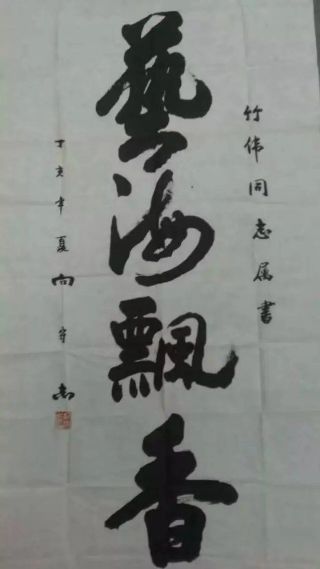 竹伟同志属書
藝海飄香
丁亥年夏向守志